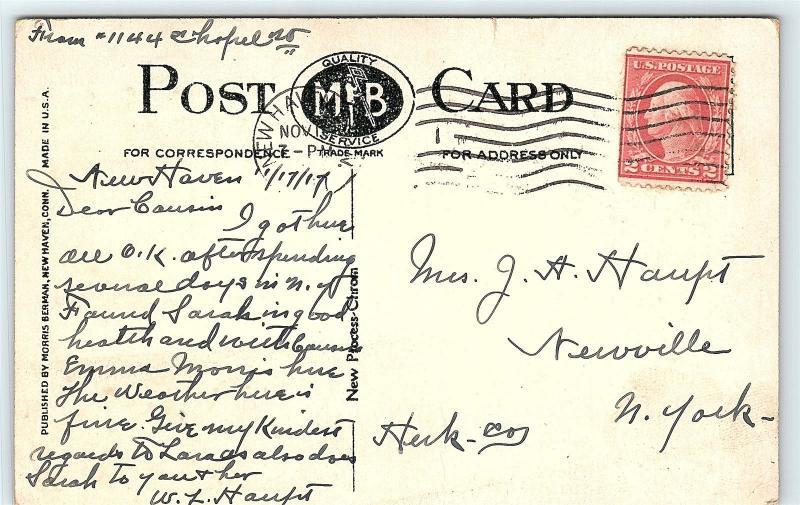 From #1144 Chapel St
POST CARD
QUALITY
M B
SERVICE
TRADE-MARK
NEW HAV
NOV 1
7-PM
U.S. POSTAGE
2 CENTS 2
FOR CORRESPONDENCE
FOR ADDRESS ONLY
PUBLISHED BY MORRIS BERMAN, NEW HAVEN, CONN. MADE IN U.S.A.
New Process-Chrom
New Haven 11/17/17
Dear Cousin
I got here
all O.K. after spending
several days in N.Y
Found Sarah in good
health and with Cousin
Emma Morris here
The Weather here is
fine. Give my Kindest
regards to Lara as also does
Sarah to you & her
W. L. Haupt
Mrs. J. H. Haupt
Newville
N. York-
Herk- Co